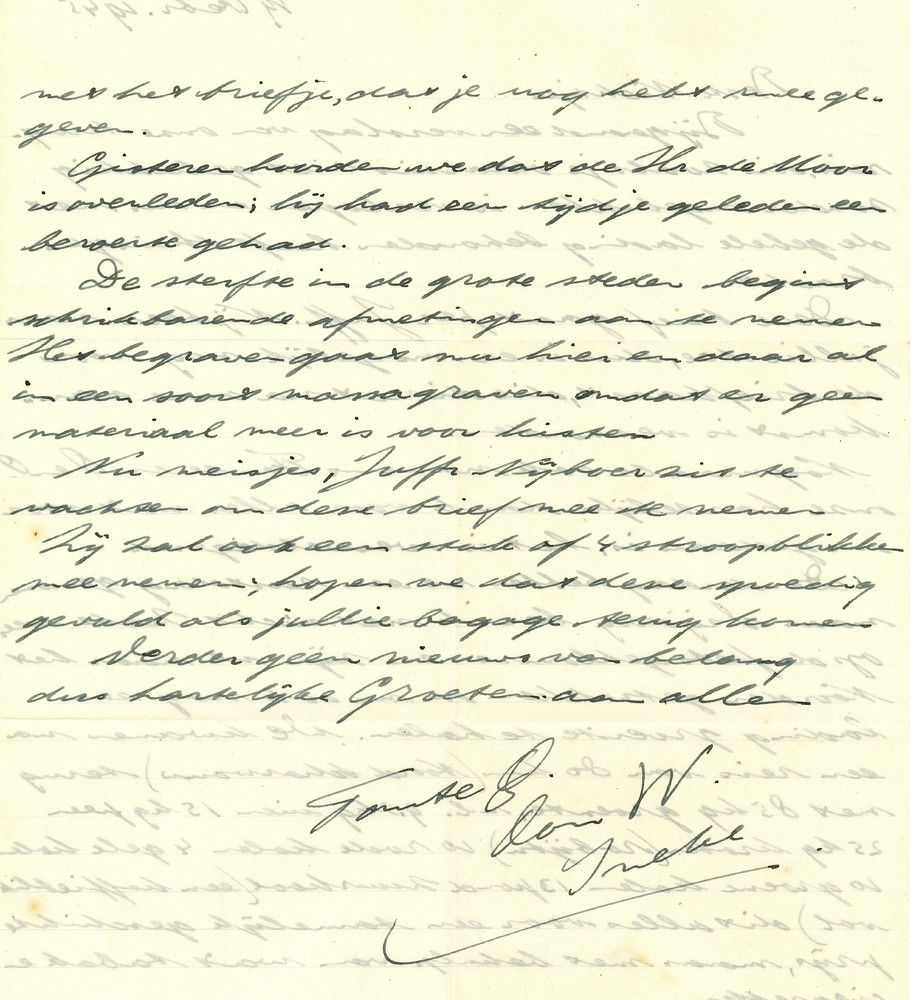 met het briefje, dat je nog hebt meege-
geven.
Gisteren hoorden we dat de Hr de Moor
is overleden; hij had een tijdje geleden een
beroerte gehad.
De sterfte in de grote steden begint
schrikbarende afmetingen aan te nemen
Het begraven gaat nu hier en daar al
in een soort massagraven omdat er geen
materiaal meer is voor kisten
Nu meisjes, Juffr Nijboer zit te
wachten om deze brief mee te nemen
Zij zal ook een stuk of 4 stroopblikken
mee nemen; hopen we dat deze spoedig
gevuld als jullie bagage terug komen
Verder geen nieuws van belang
dus hartelijke Groeten aan allen
Tante E.
Oom W.
Ineke